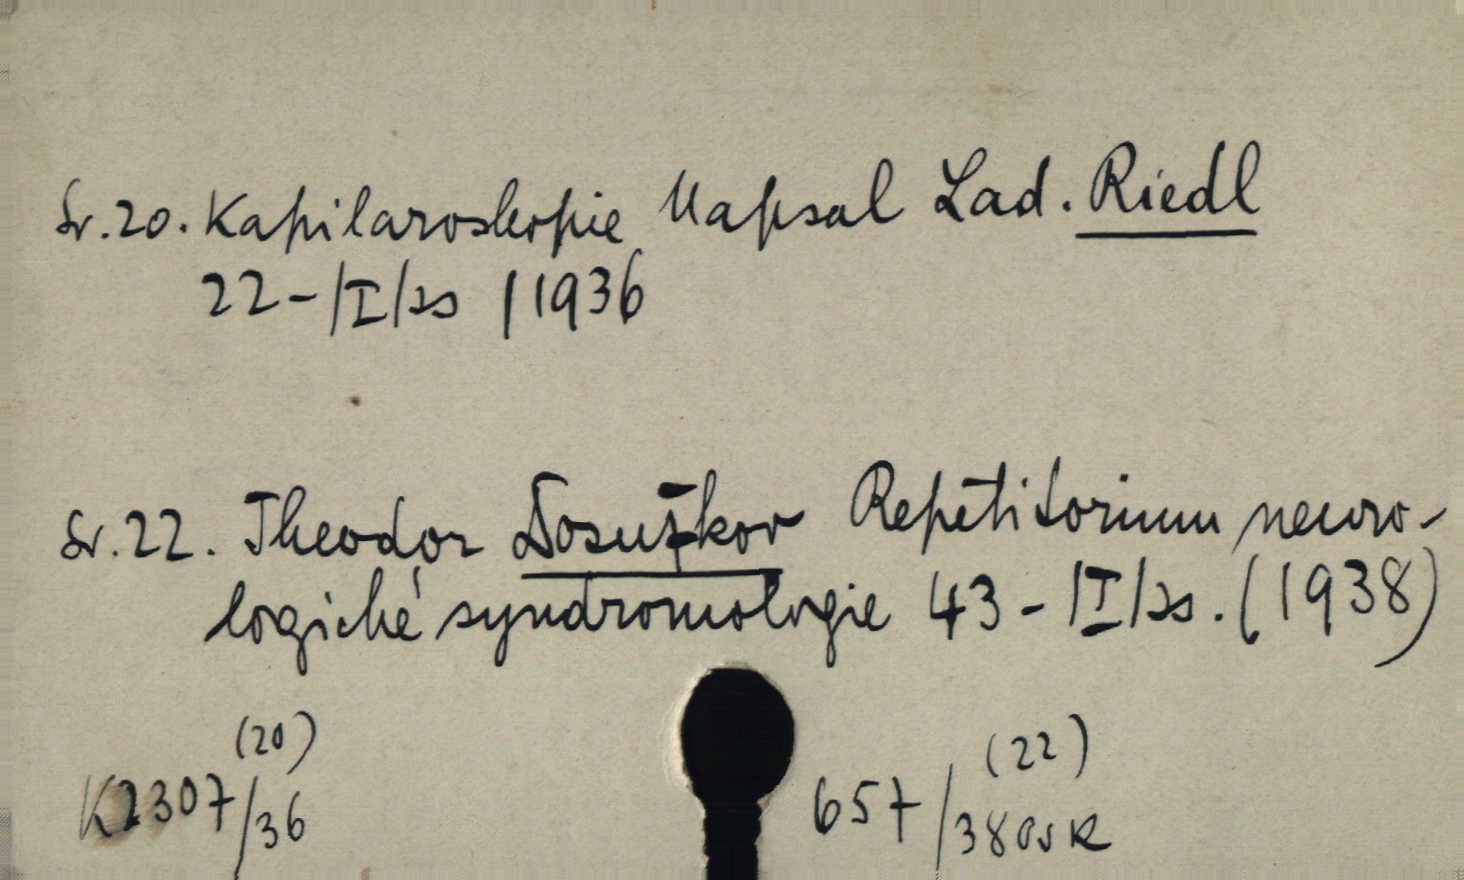 Sv.20. Kapilaroskopie Napsal Lad. Riedl
22-|I|2s | 1936
Sv.22. Theodor Dosužkov Repetitorium neuro-
logické syndromologie 43-|I|2s. (1938)
(20) (22)
K2307/36 657/38 OSK